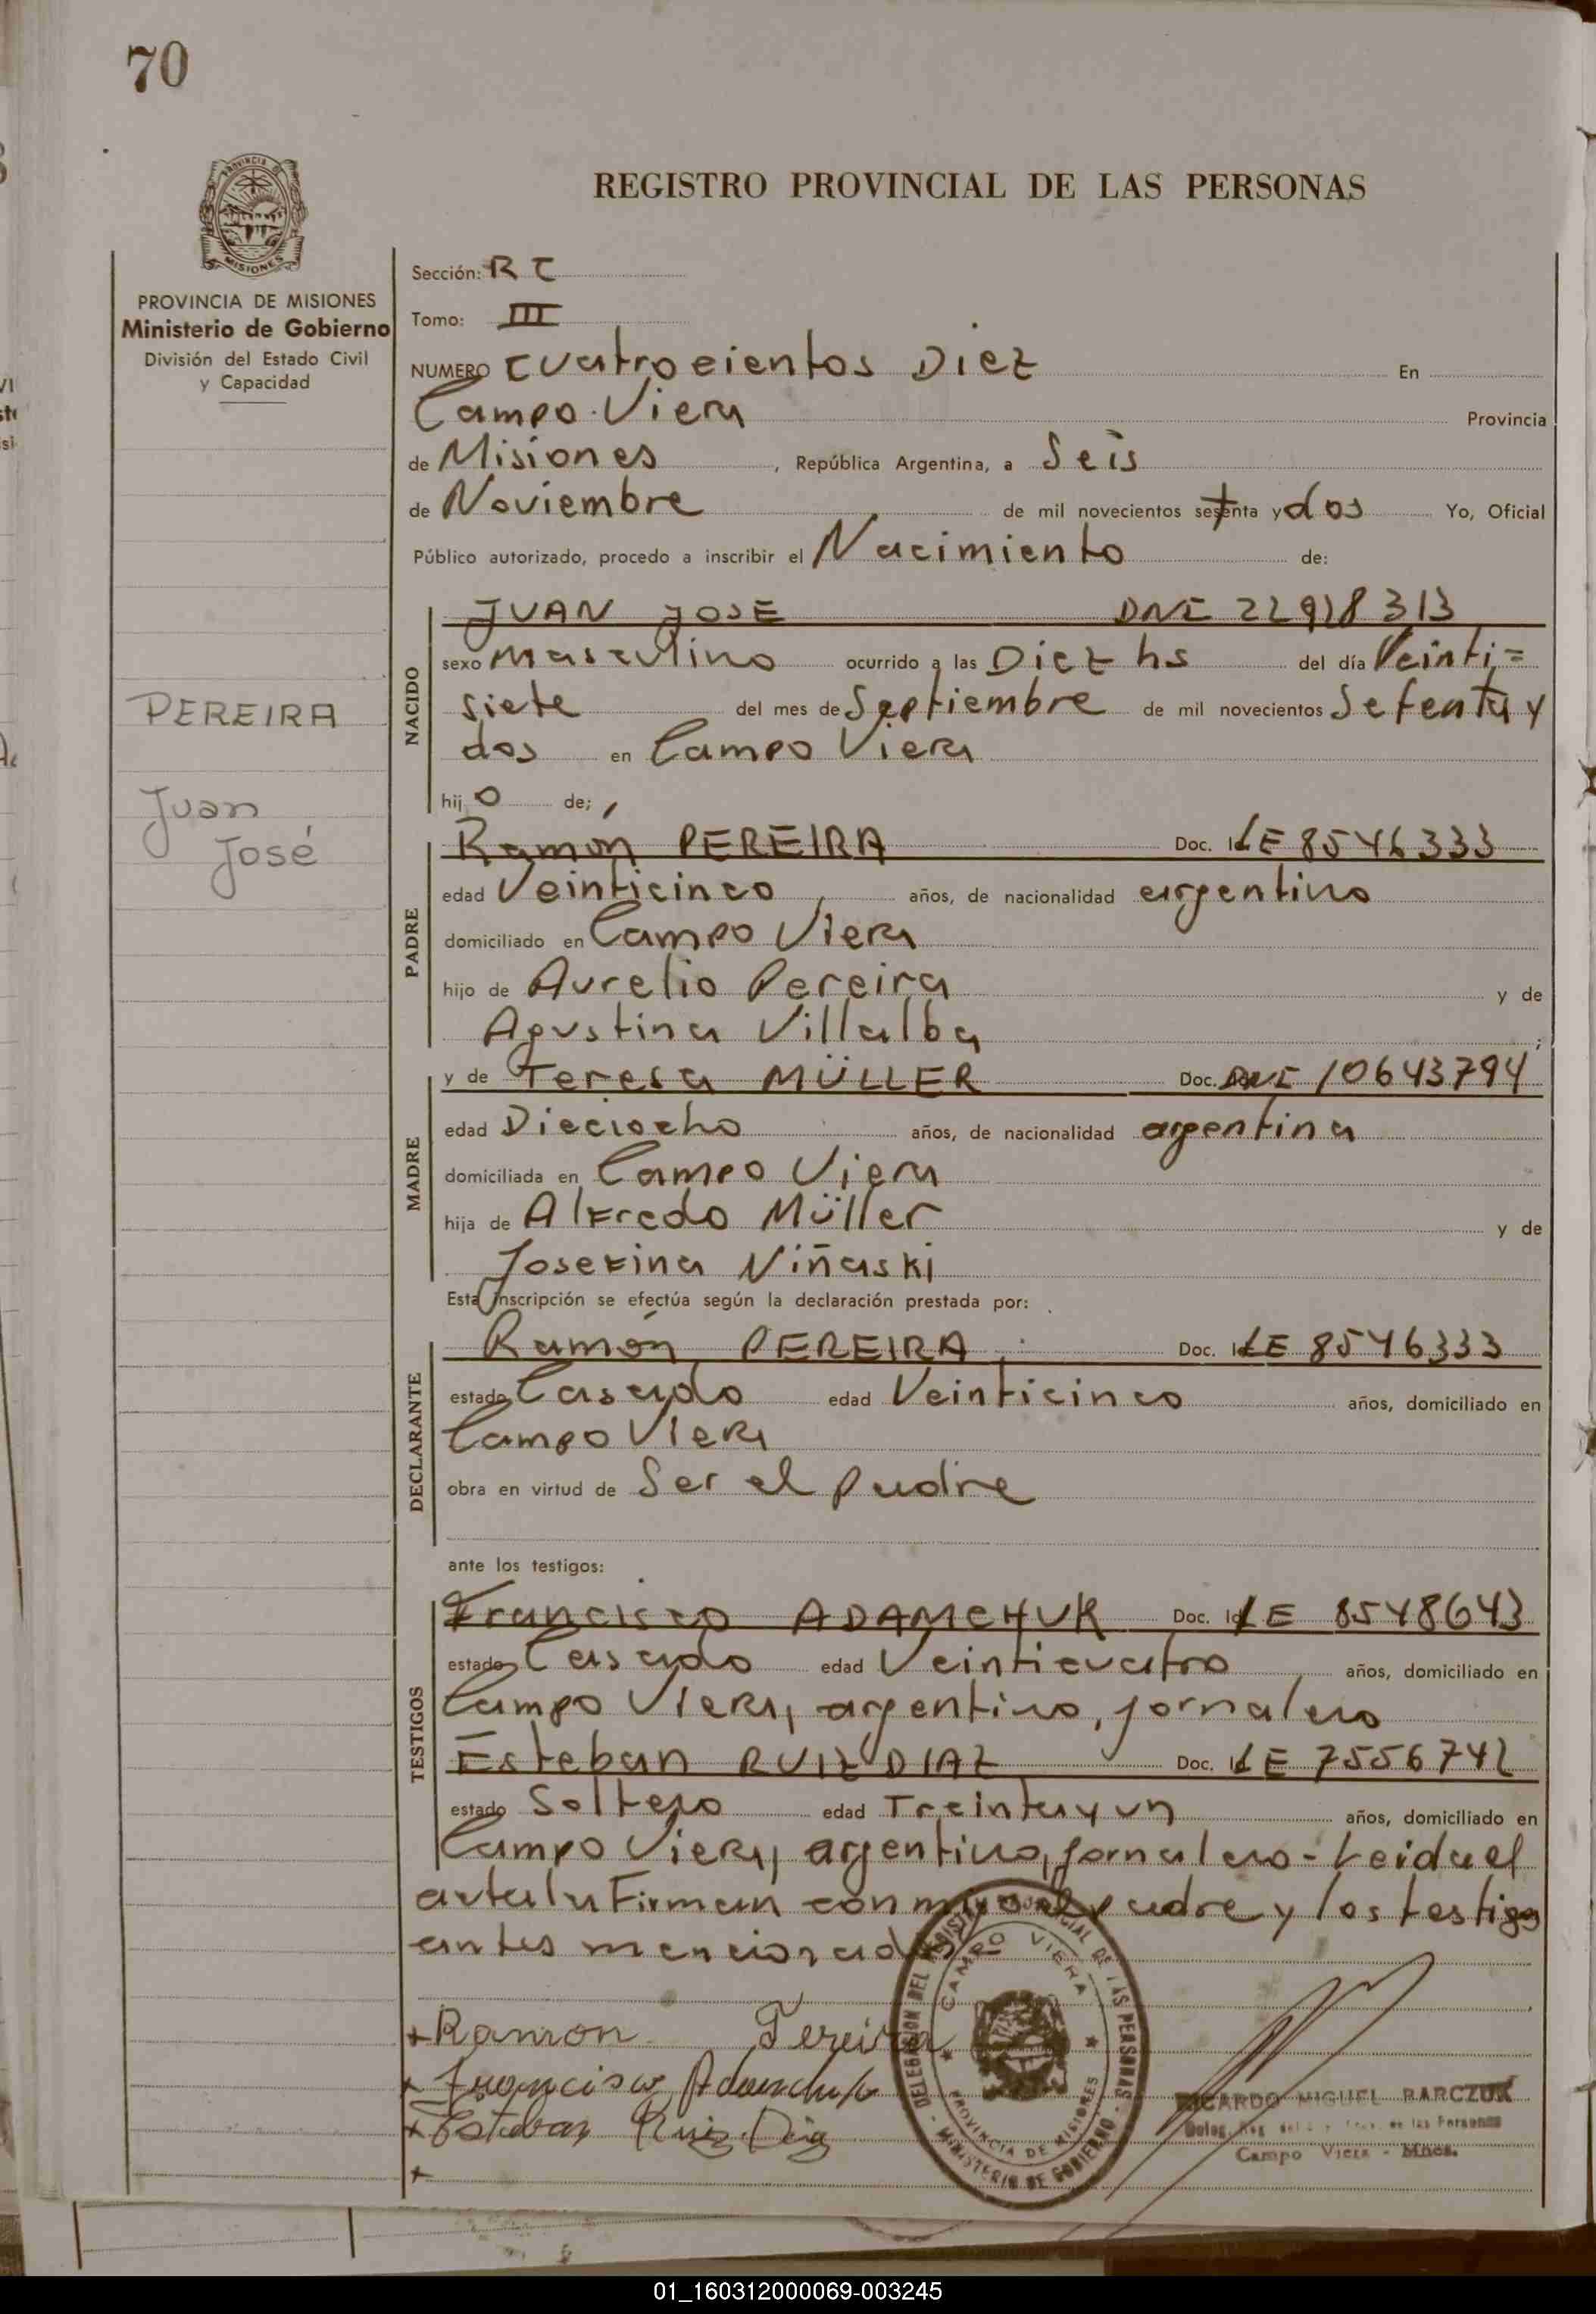 70
PROVINCIA DE MISIONES
Ministerio de Gobierno
División del Estado Civil
y Capacidad
PEREIRA
Juan
José
REGISTRO PROVINCIAL DE LAS PERSONAS
Sección: R C
Tomo: III
NUMERO Cuatrocientos Diez En
Campo Viera Provincia
de Misiones, República Argentina, a Seis
de Noviembre de mil novecientos setenta y dos Yo, Oficial
Público autorizado, procedo a inscribir el Nacimiento de:
NACIDO
JUAN JOSE DNI 22928313
sexo masculino ocurrido a las Diez hs del día Veinti=
siete del mes de Septiembre de mil novecientos Setenta y
dos en Campo Viera
hijo de;
PADRE
Ramón PEREIRA Doc. LE 8546333
edad Veinticinco años, de nacionalidad argentino
domiciliado en Campo Viera
hijo de Aurelio Pereira y de
Agustina Villalba;
MADRE
y de Teresa MÜLLER Doc. DNI 10643794
edad Dieciocho años, de nacionalidad argentina
domiciliada en Campo Viera
hija de Alfredo Müller y de
Josefina Viñaski
Esta inscripción se efectúa según la declaración prestada por:
DECLARANTE
Ramón PEREIRA Doc. LE 8546333
estado Casado edad Veinticinco años, domiciliado en
Campo Viera
obra en virtud de Ser el Padre
ante los testigos:
TESTIGOS
Francisco ADAMCHUK Doc. LE 8548643
estado Casado edad Veinticuatro años, domiciliado en
Campo Viera, argentino, jornalero
Esteban RUIZ DIAZ Doc. LE 7556742
estado Soltero edad Treinta y un años, domiciliado en
Campo Viera, argentino, jornalero - Leida el
acta la Firman conmigo el padre y los testigos
antes mencionados
+ Ramon Pereira
+ Francisco Adamchuk
+ Esteban Ruiz Diaz
+
DELEGACION DEL REGISTRO PROVINCIAL DE LAS PERSONAS
CAMPO VIERA
PROVINCIA DE MISIONES
MINISTERIO DE GOBIERNO
RICARDO MIGUEL BARCZUK
de las Personas
Campo Viera - Mnes.
01_160312000069-003245